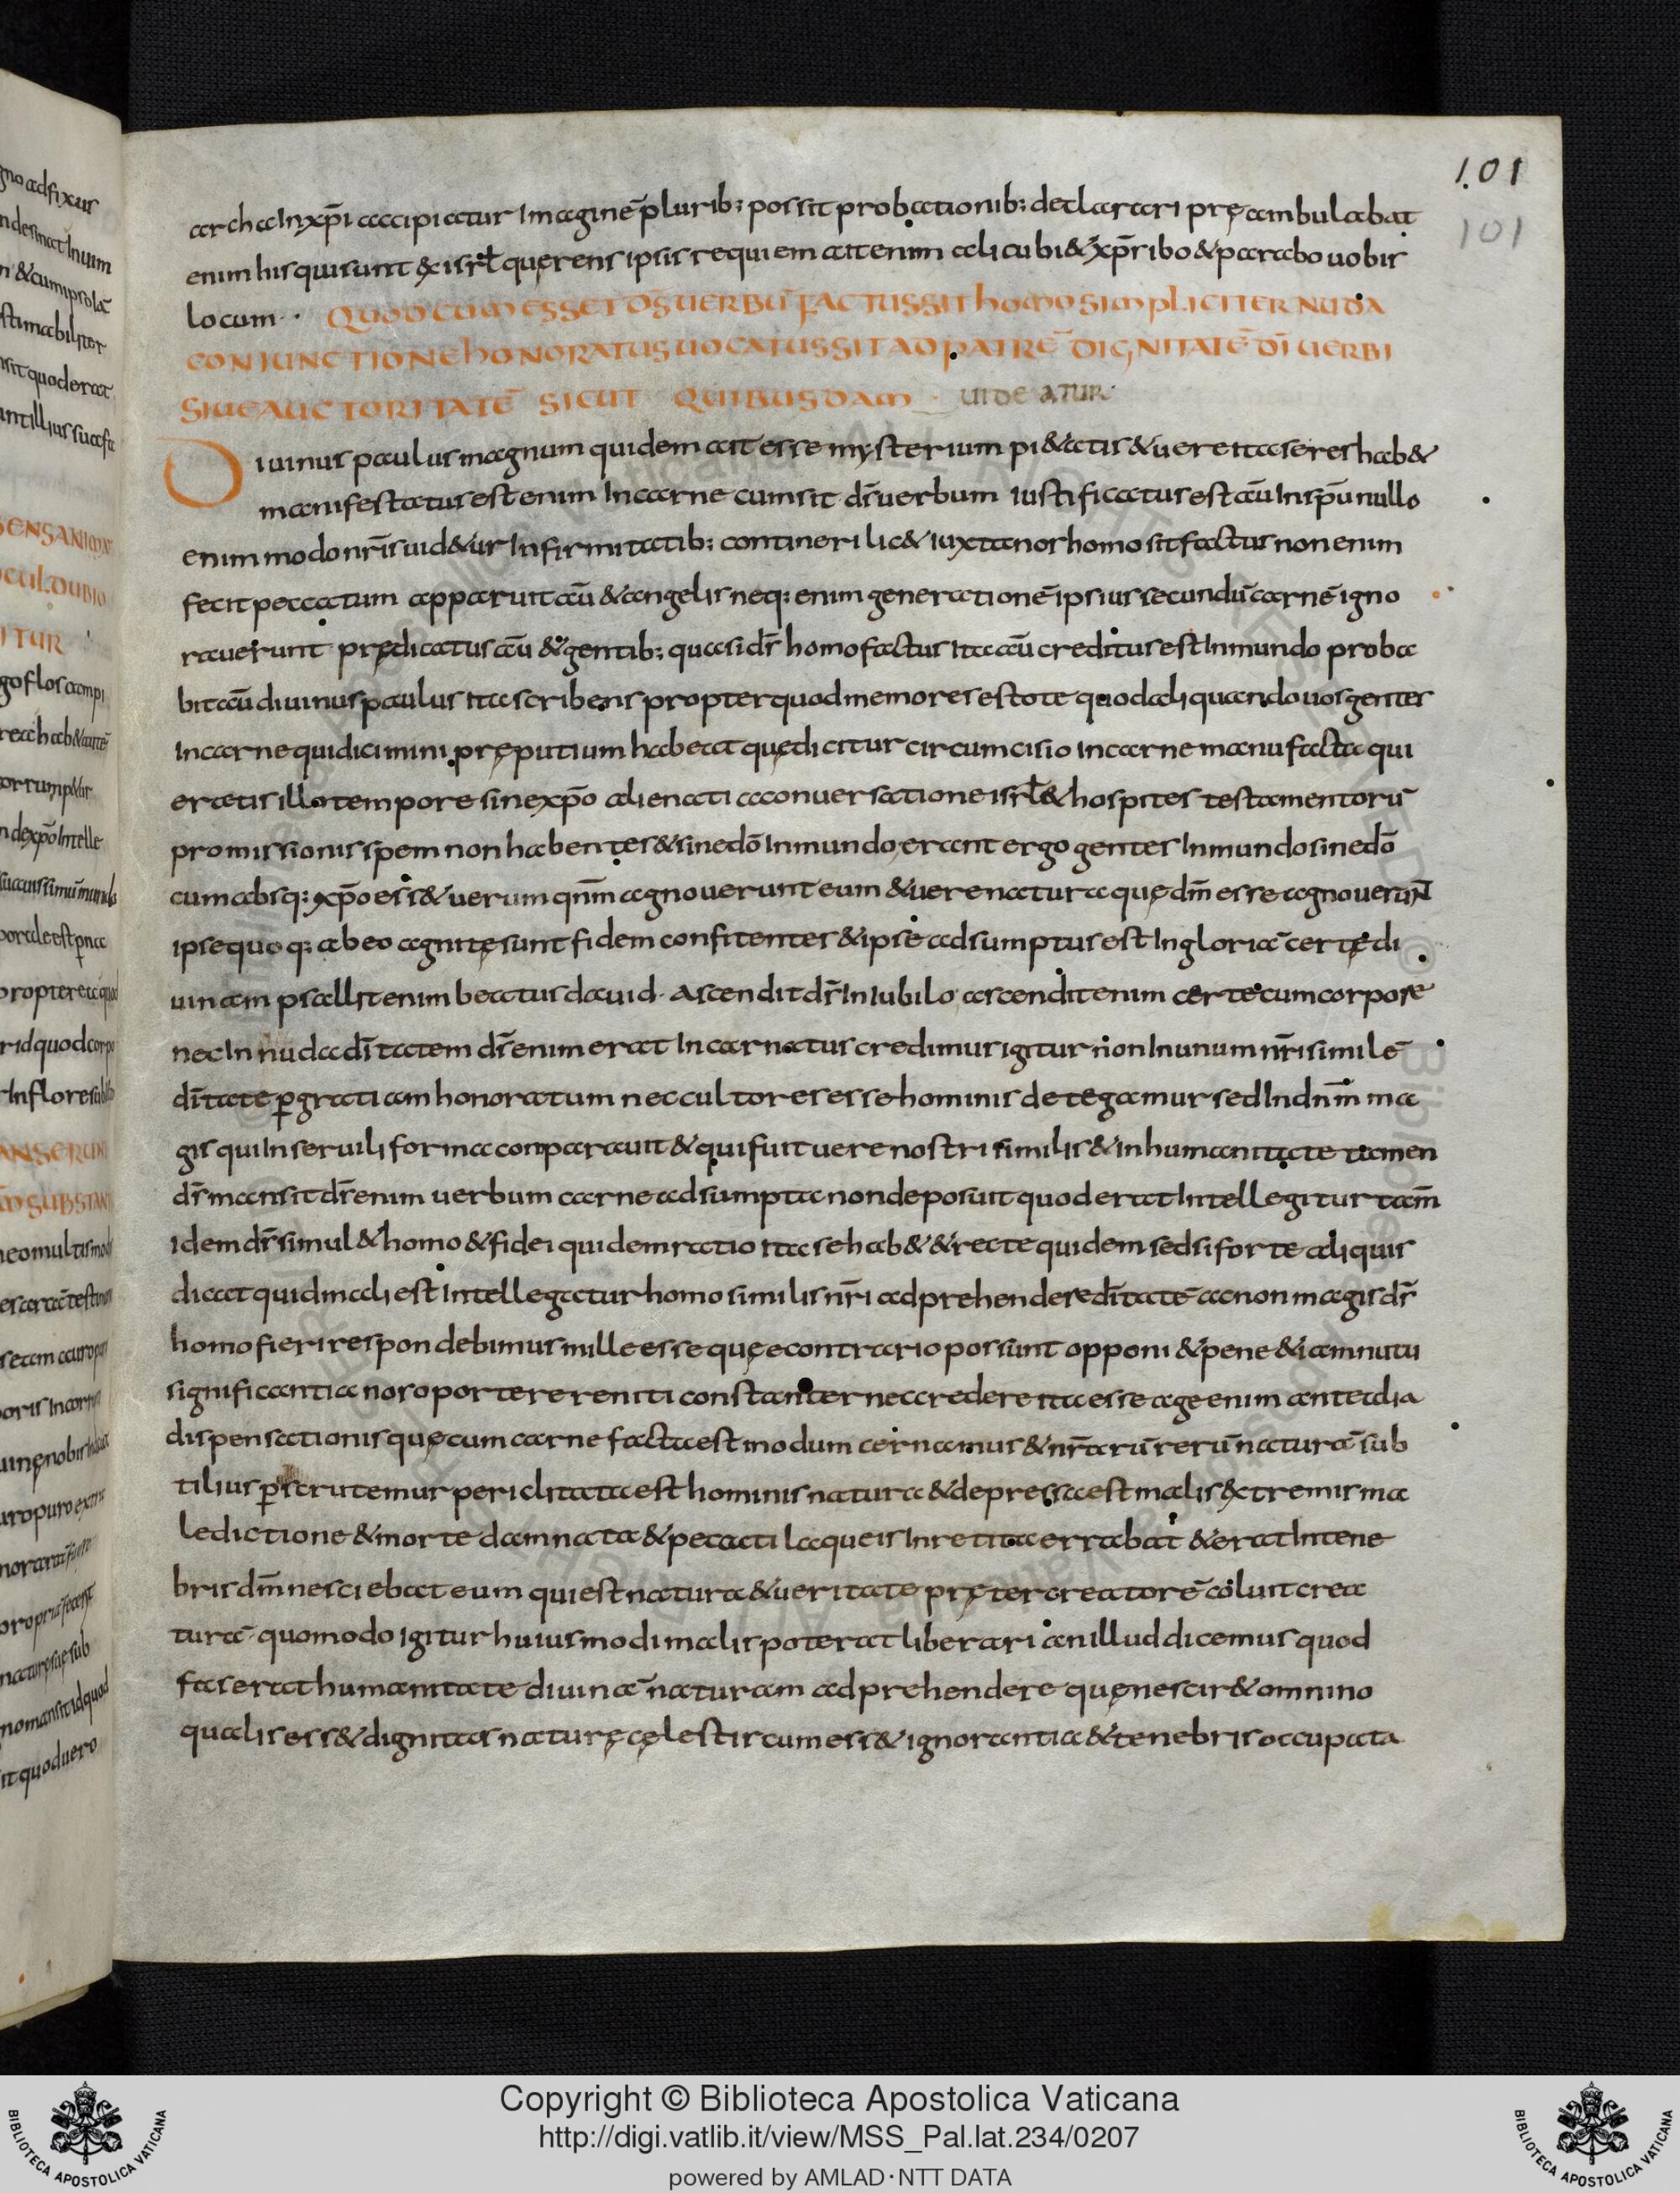 101
101
archa In xp̄i accipiatur Imaginē plurib; possit probationib; declarari pręambulabat
enim his qui sunt ex isrl̄ querens ipsis requiem ait enim alicubi & xp̄s ribo & parabo uobis
locum · QUOD CUM ESSET D̄S UERBŪ FACTUS SIT hOMO SIMPLICITER NUDA
CONIUNCTIONE hONORATUS UOCATUS SIT AD PATRĒ DIGNITATĒ DĪ UERBI
SIUE AUCTORITATĒ SICUT QUIBUSDAM · UIDEATUR·
Diuinus paulus magnum quidem ait esse mysterium pi&atis & uere ita se res hab&
manifestatus est enim In carne cum sit ds̄ uerbum iustificatus est aū In sp̄u nullo
enim modo nr̄is uid&ur Infirmitatib; contineri lic& iuxta nos homo sit factus non enim
fecit peccatum apparuit aū & angelis neq; enim generationē ipsius secundū carnē igno
rauerunt prędicatus aū & gentib; quasi ds̄ homo factus Ita aū creditus est In mundo proba
bit aū diuinus paulus ita scribens propter quod memores estote quod aliquando uos gentes
In carne qui dicimini pręputium habeat quę dicitur circumcisio in carne manufacta qui
eratis illo tempore sine xp̄o alienati a conuersatione isrl̄ & hospites testamentorū
promissionis spem non habentes & sine dō In mundo erant ergo gentes In mundo sine dō
cum absq; xp̄o ess& uerum qnm̄ agnouerunt eum & uere natura quędm̄ esse agnouerunt
ipse quoq; ab eo agnitę sunt fidem confitentes & ipse adsumptus est In gloriā certę di
uinam psallit enim beatus dauid · Ascendit ds̄ In Iubilo ascendit enim certe cum corpore
nec In nuda dītatem ds̄ enim erat Incarnatus credimus igitur non In unum nr̄i similē
dītate p̱ gratiam honoratum nec cultores esse hominis detegamur sed In dnm̄ ma
gis qui In seruili forma comparauit & qui fuit uere nostri similis & in humanitate tamen
ds̄ mansit ds̄ enim uerbum carne adsumpta non deposuit quod erat Intellegitur tam̄
idem ds̄ simul & homo & fidei quidem ratio ita se hab& & recte quidem sed si forte aliquis
dicat quid mali est Intellegatur homo similis nr̄i adprehendere dītatē ac non magis ds̄
homo fieri respondebimus mille esse quę econtrario possunt opponi & pene & iam nutu
significantia nos oportere reniti constanter nec credere ita esse age enim ante alia
dispensationis quę cum carne facta est modum cernamus & nr̄arū rerū naturā sub
tilius p̱scrutemur periclitata est hominis natura & depressa est malis extremis ma
ledictione & morte damnata & peccati laqueis Inretita errabat & erat In tene
bris dm̄ nesciebat eum qui est natura & ueritate pręter creatorē coluit crea
turā · quomodo igitur huiusmodi malis poterat liberari an illud dicemus quod
fas erat humanitate diuinā naturam adprehendere quę nescir& omnino
qualis ess& dignitas naturę cęlestis cum ess& ignorantia & tenebris occupata
Copyright © Biblioteca Apostolica Vaticana
http://digi.vatlib.it/view/MSS_Pal.lat.234/0207
powered by AMLAD·NTT DATA
BIBLIOTECA APOSTOLICA VATICANA
BIBLIOTECA APOSTOLICA VATICANA